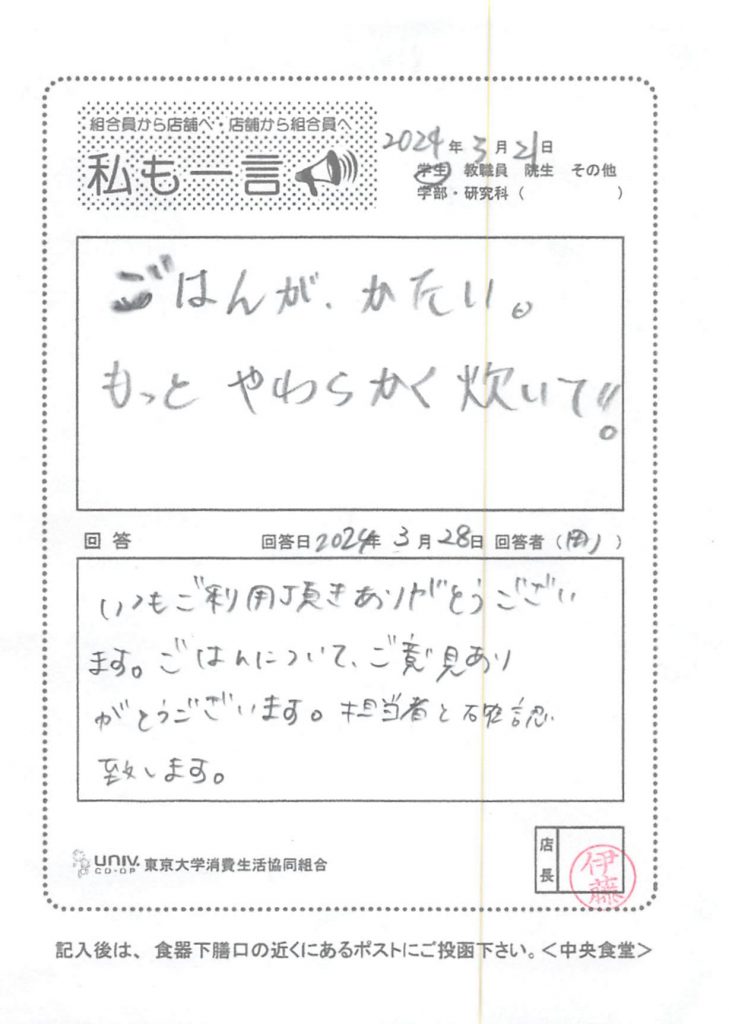 組合員から店舗へ・店舗から組合員へ
私も一言
2024年3月21日
学生 教職員 院生 その他
学部・研究科（ ）
ごはんが、かたい。
もっと やわらかく 炊いて!!。
回答 回答日2024年3月28日 回答者（岡）
いつもご利用頂きありがとうござい
ます。ごはんについて、ご意見あり
がとうございます。担当者と確認
致します。
UNIV. CO-OP 東京大学消費生活協同組合
店長
伊藤
記入後は、食器下膳口の近くにあるポストにご投函下さい。＜中央食堂＞